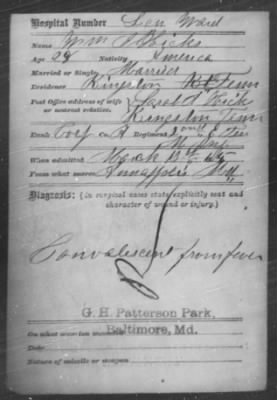 Hospital Number Gen Ward
Name Wm P Hicks
Age 28 Nativity America
Married or Single, Married
Residence Kingston Tenn
Post Office address of wife
or nearest relative. Hick
Kingston Tenn
Rank Corp Co. A Regiment 2nd E Ten
When admitted, March 13
From what source Annapolis Md
Diagnosis: (In surgical cases state explicitly seat and
character of wound or injury.)
Convalescent from fever
G. H. Patterson Park,
Baltimore, Md.
On what occasion wounded
Date
Nature of missile or weapon